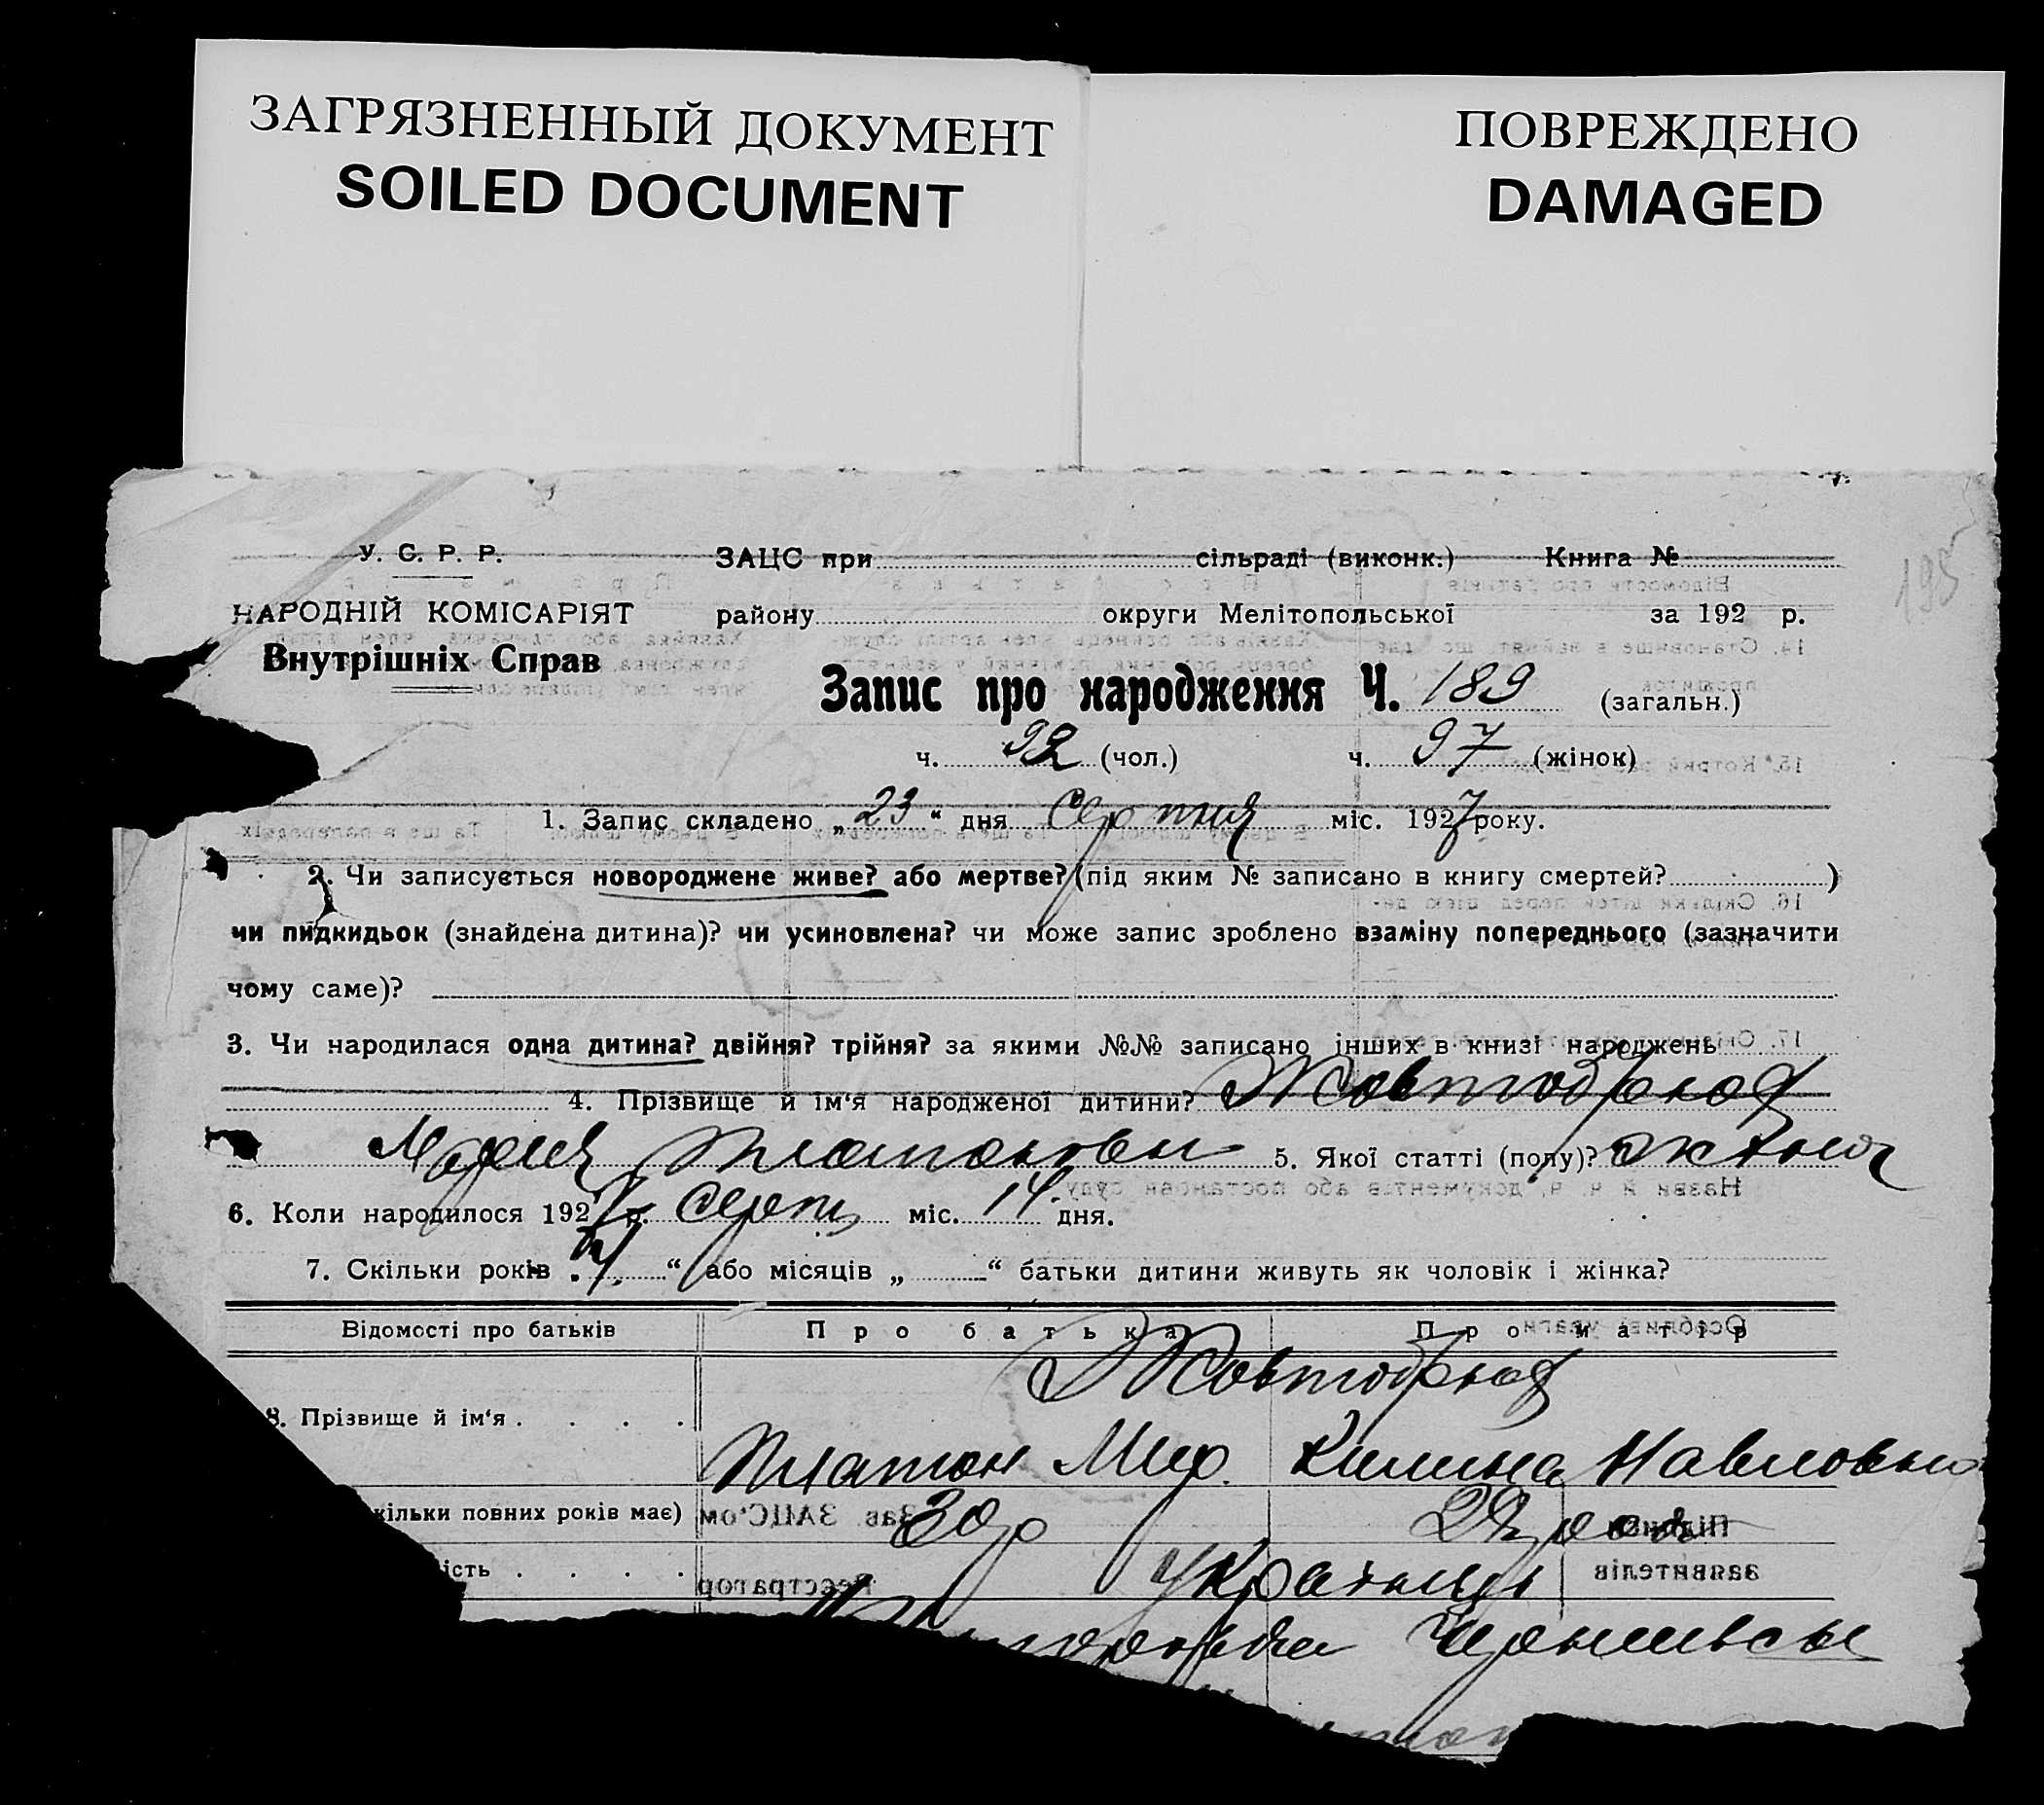 ЗАГРЯЗНЕННЫЙ ДОКУМЕНТ
SOILED DOCUMENT
ПОВРЕЖДЕНО
DAMAGED
У. С. Р. Р. ЗАЦС при сільраді (виконк.) Книга №
НАРОДНІЙ КОМІСАРІЯТ району округи Мелітопольської за 192 р.
Внутрішніх Справ
Запис про народження Ч. 189 (загальн.)
ч. 92 (чол.) ч. 97 (жінок)
1. Запис складено „23“ дня Серпня міс. 1927 року.
2. Чи записується новороджене живе? або мертве? (під яким № записано в книгу смертей? )
чи підкидьок (знайдена дитина)? чи усиновлена? чи може запис зроблено взаміну попереднього (зазначити
чому саме)?
3. Чи народилася одна дитина? двійня? трійня? за якими №№ записано інших в книзі народжень
4. Прізвище й ім'я народженої дитини? Жовтобрюх
Мария Платоновн 5. Якої статті (полу)?
6. Коли народилося 1927 р. Серпн міс. 14 дня.
7. Скільки років „ “ або місяців „ “ батьки дитини живуть як чоловік і жінка?
Відомості про батьків Про батька Про матір
Жовтобрюх
8. Прізвище й ім'я . . . .
Платон Мир. Килина Павловна
кільки повних років має) 30 р
ість . . . . Українці